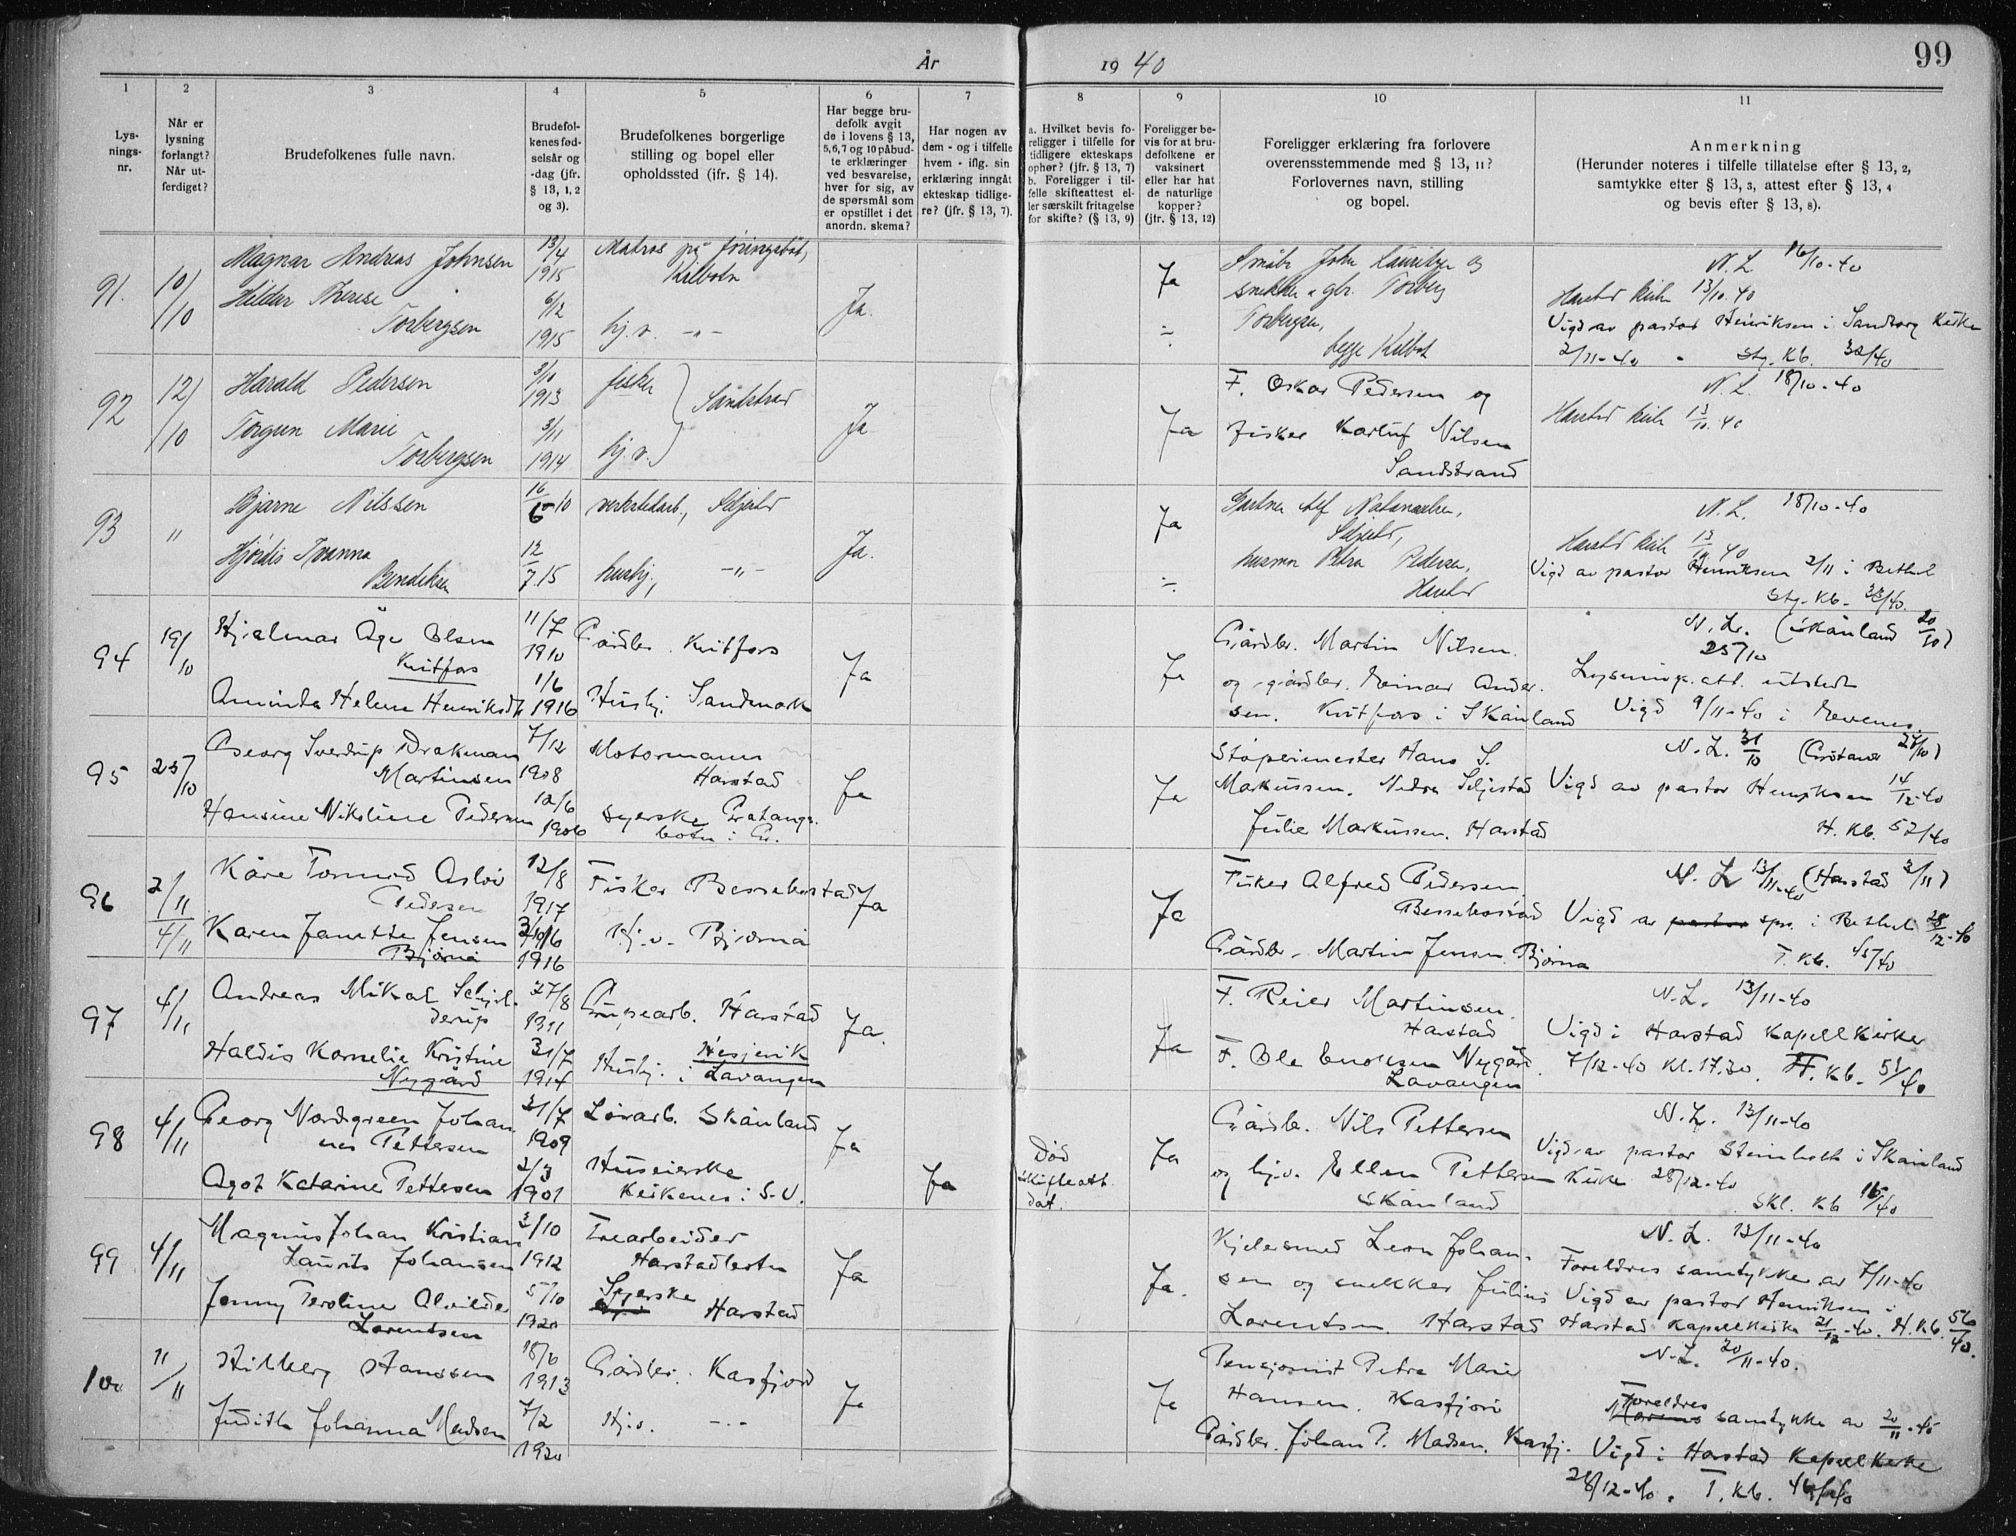 99
År 1940
1 2 3 4 5 6 7 8 9 10 11
Lys-
nings-
nr.
Når er
lysning
forlangt?
Når ut-
ferdiget?
Brudefolkenes fulle navn.
Brudefol-
kenes fød-
selsår og
-dag (jfr.
§ 13, 1, 2
og 3).
Brudefolkenes borgerlige
stilling og bopel eller
opholdssted (jfr. § 14).
Har begge bru-
defolk avgit
de i lovens § 13,
5,6,7 og 10 påbud-
te erklæringer
ved besvarelse,
hver for sig, av
de spørsmål som
er opstillet i det
anordn. skema?
Har nogen av
dem - og i tilfelle
hvem - iflg. sin
erklæring inngåt
ekteskap tidlige-
re? (jfr. § 13, 7).
a. Hvilket bevis fo-
religger i tilfelle for
tidligere ekteskaps
ophør? (jfr. § 13, 7)
b. Foreligger i til-
felle skifteattest el-
ler særskilt fritagelse
for skifte? (§ 13, 9)
Foreligger be-
vis for at bru-
defolkene er
vaksinert
eller har hat
de naturlige
kopper?
(jfr. § 13, 12)
Foreligger erklæring fra forlovere
overensstemmende med § 13, 11?
Forlovernes navn, stilling
og bopel.
Anmerkning
(Herunder noteres i tilfelle tillatelse efter § 13, 2,
samtykke efter § 13, 3, attest efter § 13, 4
og bevis efter § 13, 8).
91. 10/10
Magnar Andreas Johnsen
13/4 1915
Matros på
Kilbotn
Hildur Therese
Torbergsen
6/12 1915
hj.v. -"-
Ja.
Ja
÷
Småbr. John og
snekker
Torbergsen,
begge Kilbot
N.L. 16/10-40
Harstad kirke 13/10.40
Vigd av pastor Henriksen i Sandtorg Kirke
2/11-40 - Stg. Kb. 32/40
92 12/10
Harald Pedersen
3/10 1913
fisker
Sandstrand
Torgun Marie
Torbergsen
3/11 1914
hj.v.
Ja
Ja
F. Oskar Pedersen og
fisker Karluf Nilsen
Sandstrand
N.L. 18/10-40
Harstad kirke 13/10.40
93 "
Bjarne Nilssen
16/6-10
verkstedarb., Seljestad
Hjørdis Ivanna
Bendiksen
12/7.15
hushj., -"-
Ja.
Ja
÷
Gartner Alf Natanaelsen,
Seljestad,
husmor Petra Pedersen,
Harstad
N.L. 18/10-40
Harstad kirke 13/10 40
Vigd av pastor Henriksen 2/11 i Bethel
Stg. Kb. 33/40.
94 19/10
Hjalmar Åge Olsen
Kvitfors
11/7 1910
Gårdbr. Kvitfors
Aminda Helene Henriksdt.
1/6 1916
Hushj. Sandmark
Ja
Ja
Gårdbr. Martin Nilsen.
og gårdbr. Einar Ander.
sen. Kvitfors i Skånland
N.L. (i Skånland 20/10)
25/10
Lysnings.att. utstedt
Vigd 9/11-40 i Evenes
95 25/10
Georg Sverdrup Drakman
Martinsen
7/12 1908
Motormann
Harstad
Hansine Nikoline Pedersen
12/6 1906
syerske Gratangs.
botn i Gr.
Ja
Ja
Støperimester Hans S.
Markussen. Nedre Seljestad
Julie Markussen. Harstad
N.L. 31/10 (Gratanger 27/10)
Vigd av pastor Henriksen 14/12-40
H. Kb. 52/40
96 2/11 4/11
Kåre Tormod Asløv
Pedersen
12/8 1917
Fisker Bessebostad
Karen Janette Jensen
Bjørnå
1916
Hj.v. Bjørnå
Ja
Ja
Fisker Alfred Pedersen
Bessebostad
Gårdbr. Martin Jensen Bjørnå
N.L. 13/11-40 (Harstad 3/11)
Vigd av pastor spr. i Bethel 28/12-40
T. Kb. 45/40
97 4/11
Andreas Mikal Schjel.
derup
27/8 1911
Grupearb. Harstad
Haldis Kornelie Kristine
Nygård
31/7 1914
Hushj. Hesjevik
i Lavangen
Ja.
Ja
F. Reier Martinsen.
Harstad
F. Ole Enoksen Nygård.
Lavangen
N.L. 13/11-40
Vigd i Harstad Kapellkirke
7/12-40 Kl. 17.30. H. Kb. 51/40
98 4/11
Georg Nordgreen Johan
nes Pettersen
31/7 1909
Løsarb. Skånland
Agot Katarine Pettersen
2/3 1901
Huseierske
Kirkenes i S-V.
Ja
Ja
Død
skifteatt.
dat.
Ja
Gårdbr. Nils Pettersen
og hj.v. Ellen Pettersen
Skånland
N.L. 13/11-40
Vigd av pastor Steinholt i Skånland
Kirke 28/12-40
Skl. Kb 16/40
99 4/11
Magnus Johan Kristian
Laurits Johansen
3/10 1912
Trearbeider
Harstadbotn
Jenny Teroline Alvilde
Lorentsen
5/10 1920
Syerske
Harstad
Ja
Ja.
Kjelesmed Leon Johan.
sen og snekker Julius
Lorentsen. Harstad
N.L. 13/11-40
Foreldres samtykke av 7/11-40
Vigd av pastor Henriksen i
Harstad Kapellkirke 21/12-40. H. Kb. 56/40.
100 11/11
Hilberg Hanssen
18/6 1913
Gårdbr. Kasfjord
Judith Johanna Madsen
7/2 1920
Hj.v. -"-
Ja
Ja
Pensjonist Petra Marie
Hansen. Kasfjord
Gårdbr. Johan P. Madsen. Kasfj.
N.L. 20/11-40.
Foreldres
samtykke av 20/11-40
Vigd i Harstad Kapellkirke
28/12-40. T. Kb. 46/40